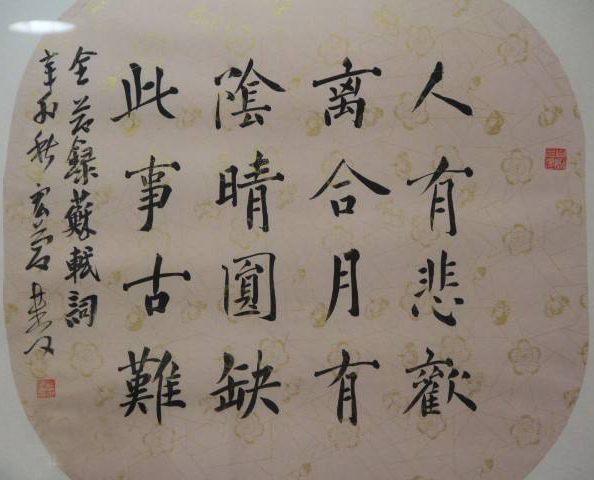 人有悲歡
离合月有
陰晴圓缺
此事古難
錄蘇軾詞
辛卯秋